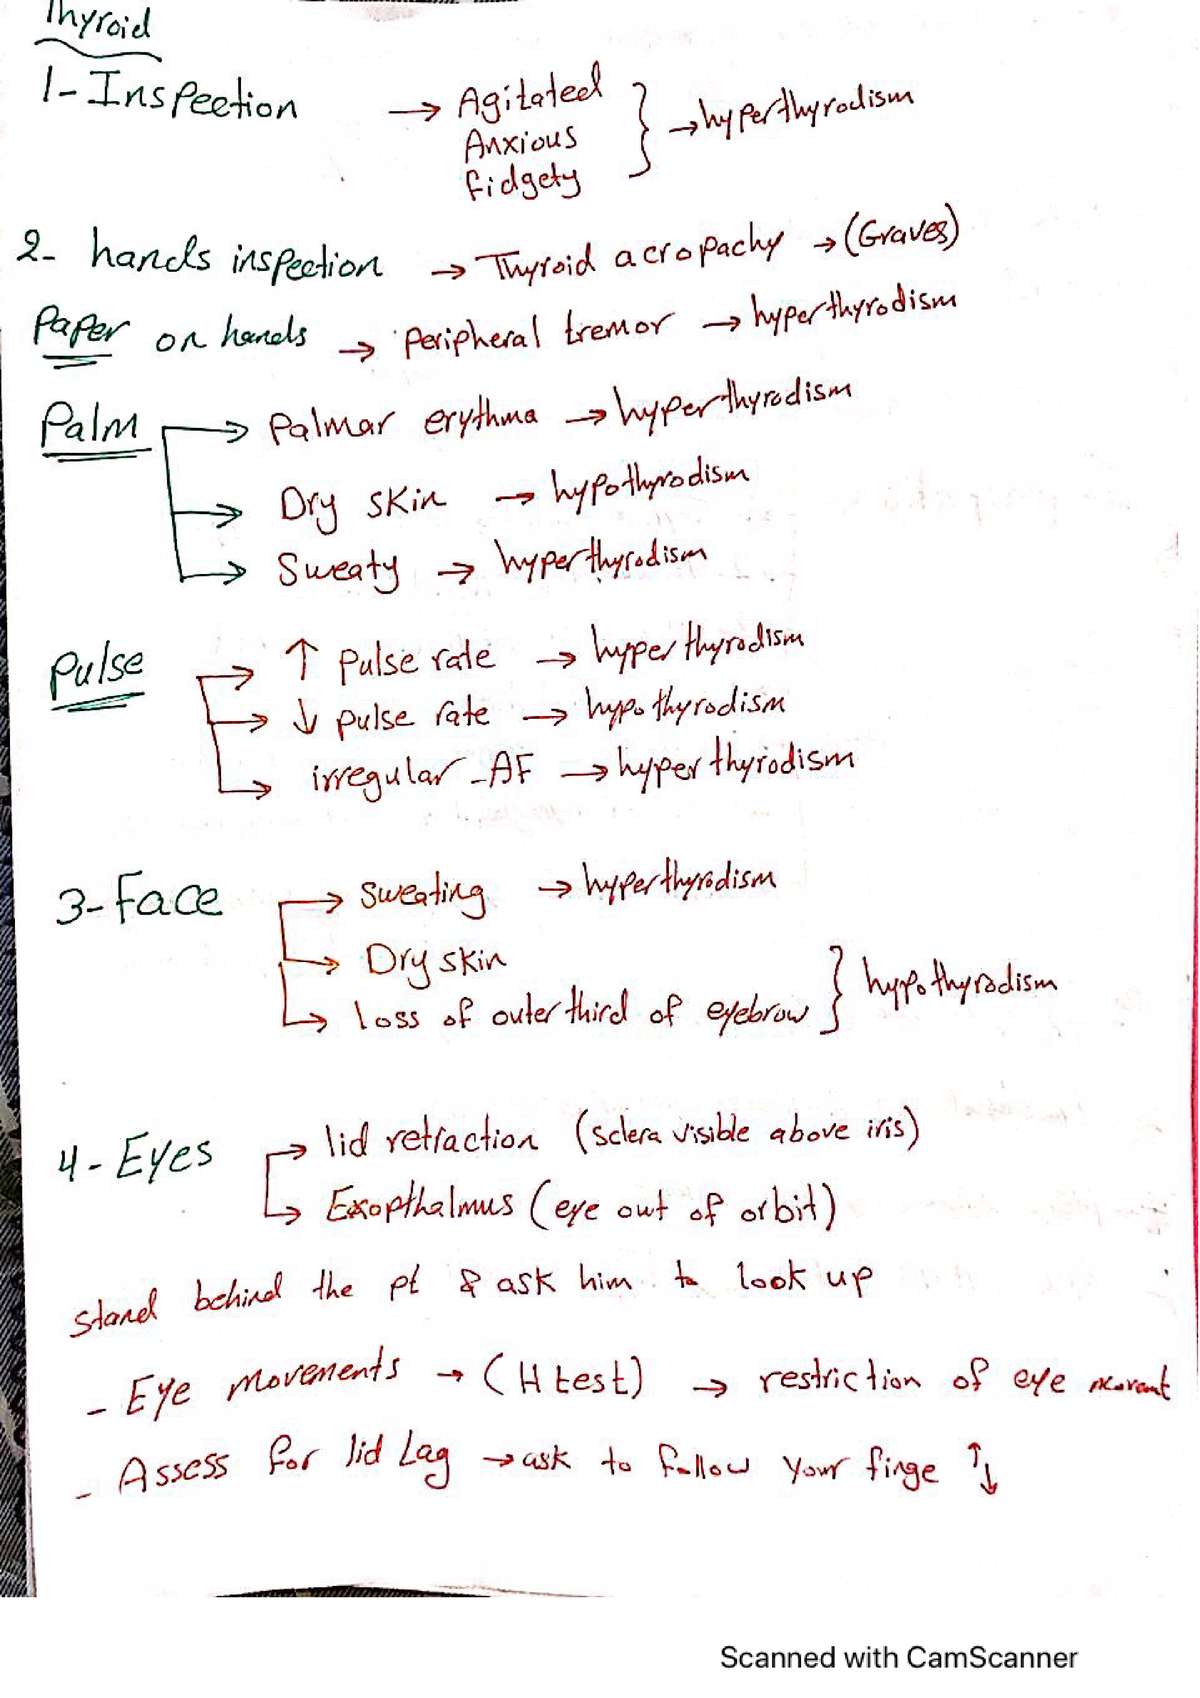 Thyroid
1- Inspection → Agitated } → hyperthyrodism
Anxious
fidgety
2- hands inspection → Thyroid acropachy → (Graves)
Paper on hands → peripheral tremor → hyperthyrodism
Palm → Palmar erythma → hyperthyrodism
→ Dry skin → hypothyrodism
→ Sweaty → hyperthyrodism
Pulse → ↑ pulse rate → hyperthyrodism
→ ↓ pulse rate → hypothyrodism
→ irregular - AF → hyperthyrodism
3- Face → Sweating → hyperthyrodism
→ Dry skin } hypothyrodism
→ loss of outer third of eyebrow
4- Eyes → lid retraction (sclera visible above iris)
→ Exopthalmus (eye out of orbit)
stand behind the pt & ask him to look up
- Eye movements → (H test) → restriction of eye
- Assess for lid Lag → ask to follow your finge ↑↓
Scanned with CamScanner